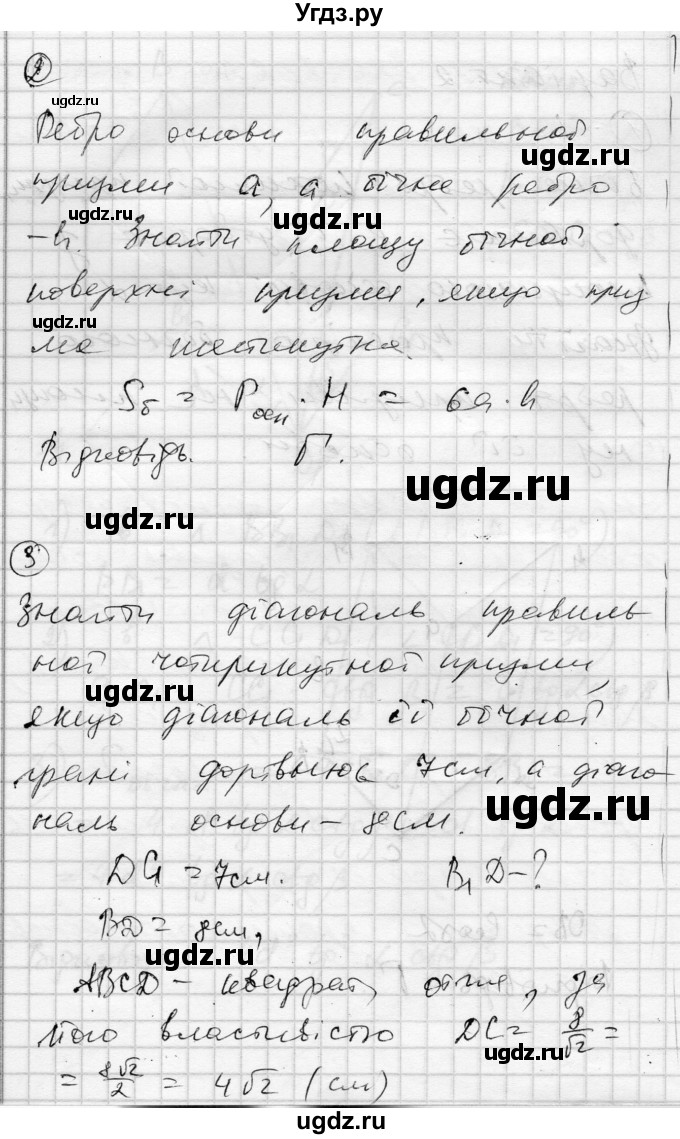 Угдз.ру
2
Ребро основи правильної
призми a, а бічне ребро
– h. Знайти площу бічної
поверхні призми, якщо приз
ма шестикутна.
Sб = Pосн · H = 6a · h
Відповідь. Г.
3
Знайти діагональ правиль-
ної чотирикутної призми,
якщо діагональ її бічної
грані дорівнює 7см, а діаго-
наль основи – 8см.
DC₁ = 7см. B₁D – ?
BD = 8см,
ABCD – квадрат, отже, за
його властивістю DC = 8/√2 =
= 8√2/2 = 4√2 (см)
ugdz.ru
ugdz.ru
ugdz.ru
ugdz.ru
ugdz.ru
ugdz.ru
ugdz.ru
ugdz.ru
ugdz.ru
ugdz.ru
ugdz.ru
ugdz.ru